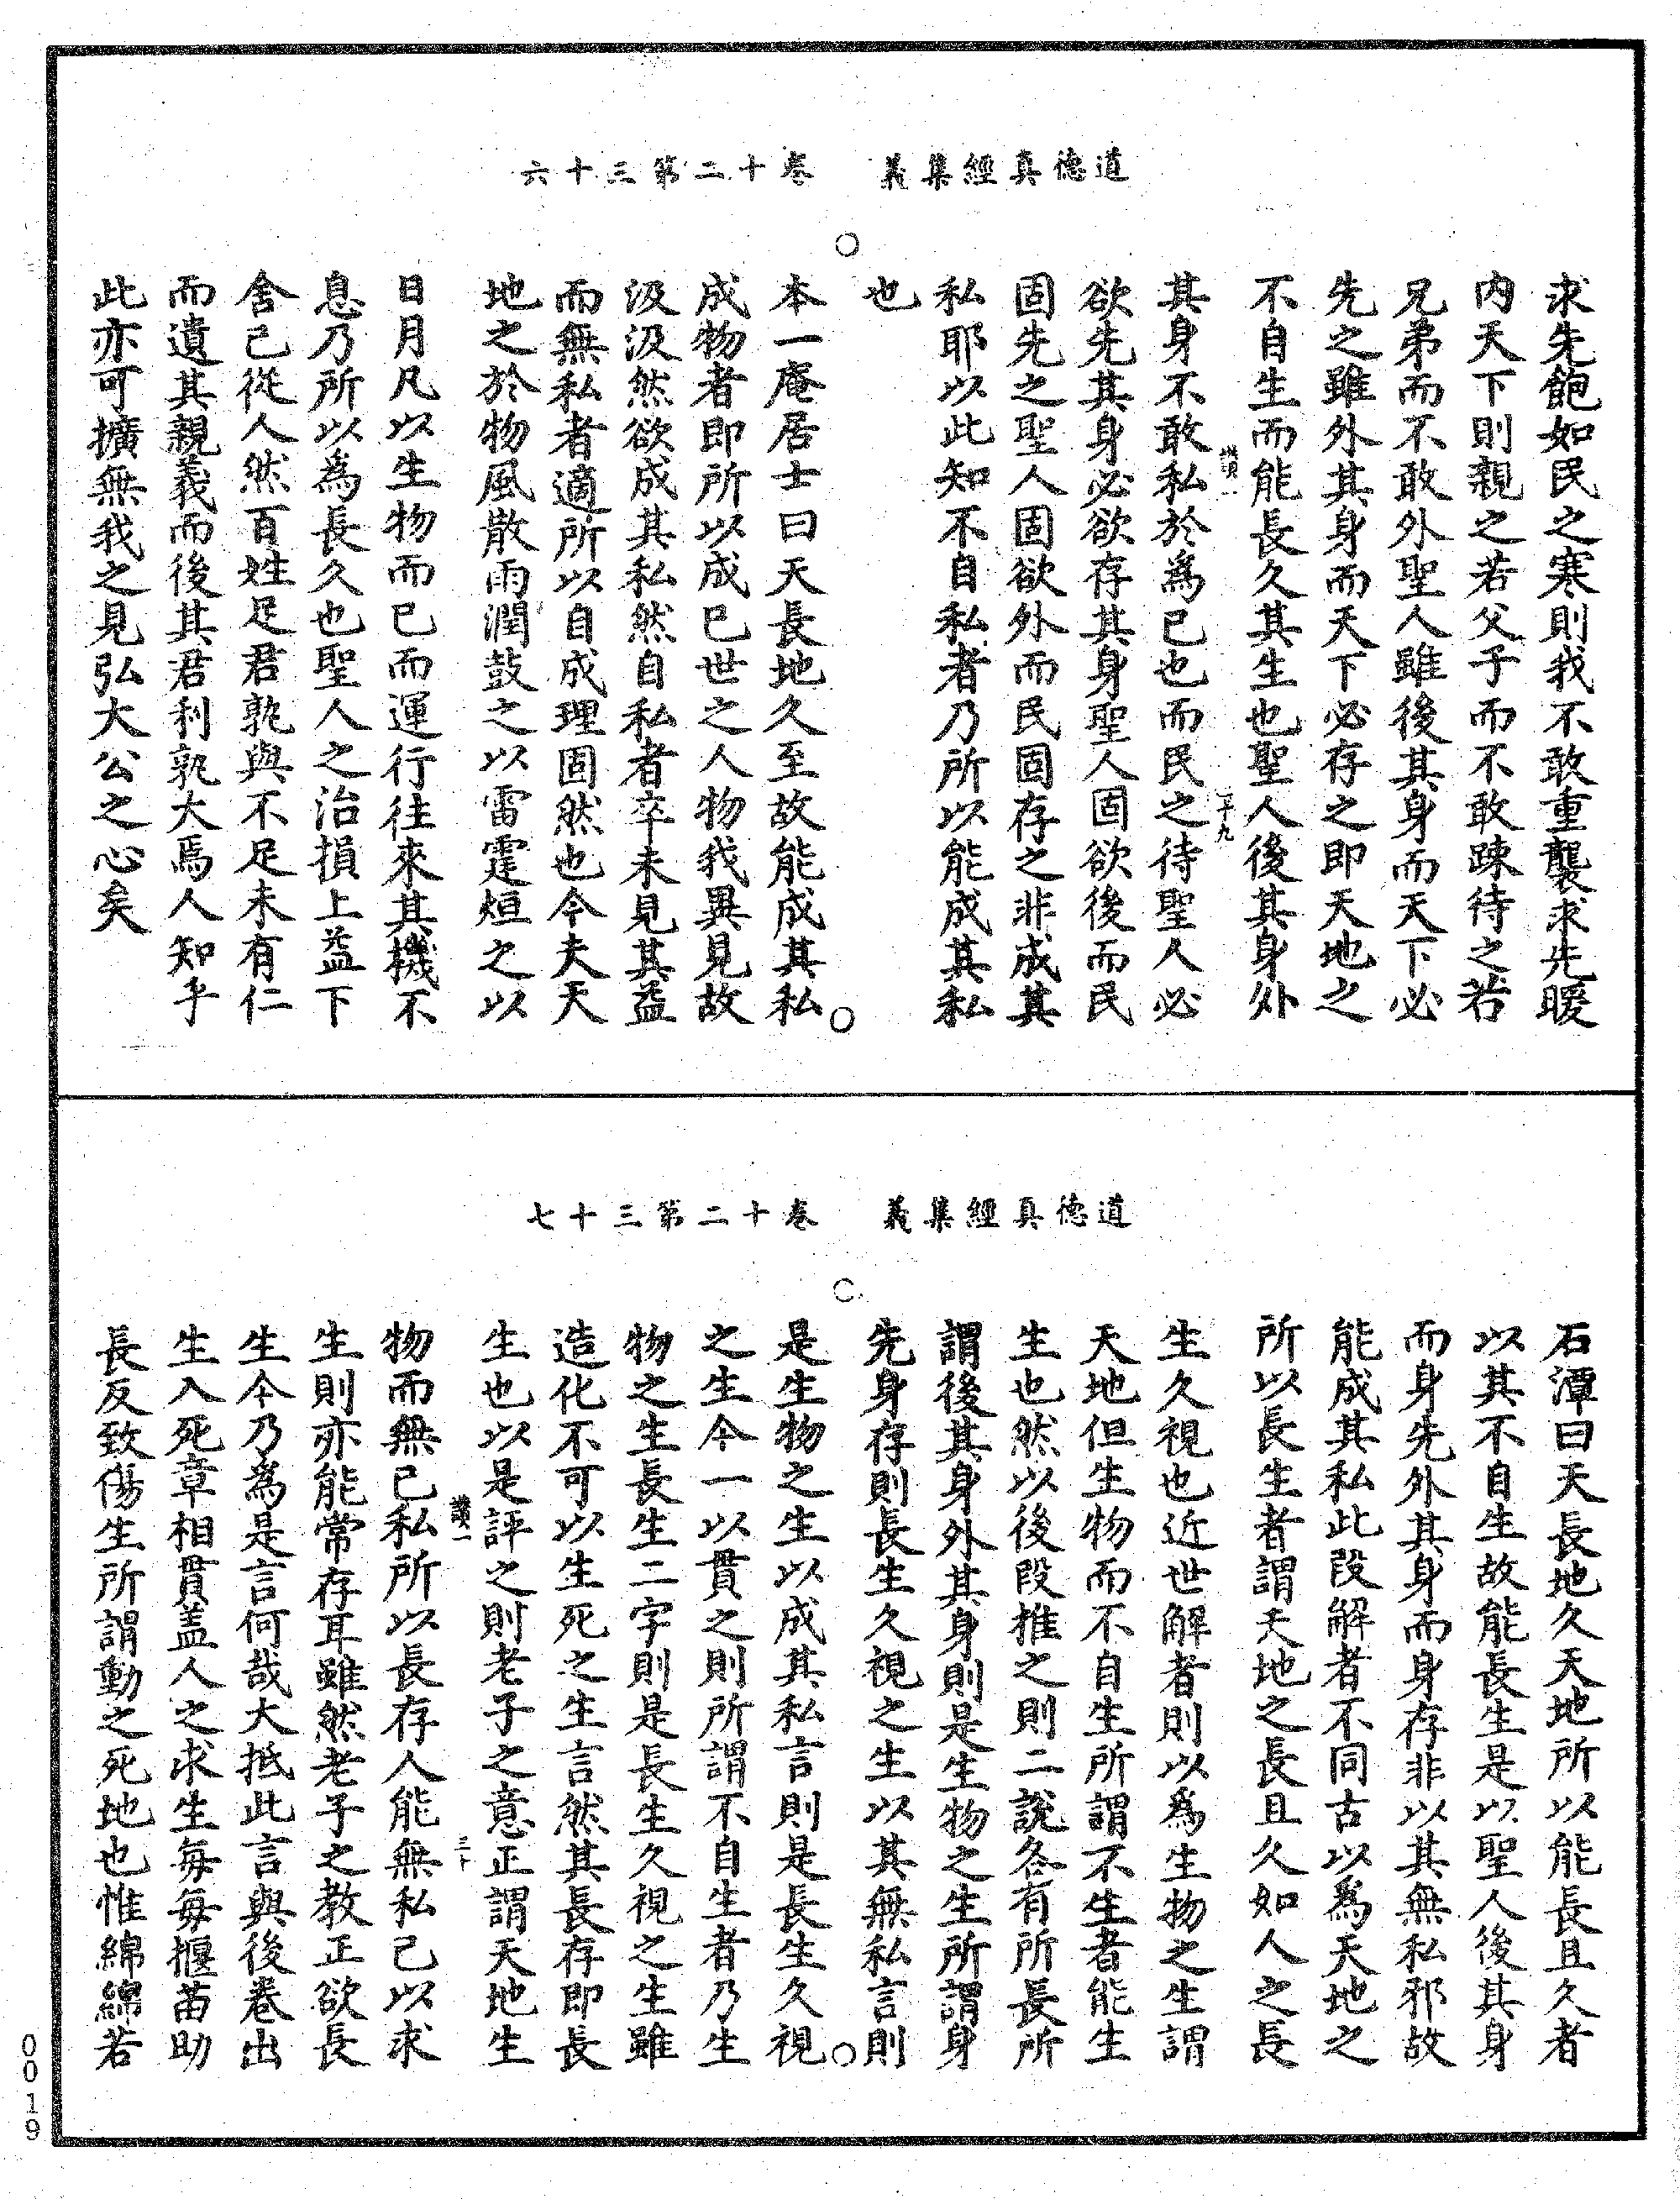 道德真經集義　卷十二第三十六
求先飽如民之寒則我不敢重襲求先暖
内天下則親之若父子而不敢踈待之若
兄弟而不敢外聖人雖後其身而天下必
先之雖外其身而天下必存之即天地之
不自生而能長久其生也聖人後其身外
其身不敢私於爲已也而民之待聖人必
欲先其身必欲存其身聖人固欲後而民
固先之聖人固欲外而民固存之非成其
私耶以此知不自私者乃所以能成其私
也
本一庵居士曰天長地久至故能成其私
成物者即所以成已世之人物我異見故
汲汲然欲成其私然自私者卒未見其益
而無私者適所以自成理固然也今夫天
地之於物風散雨潤鼓之以雷霆烜之以
日月凡以生物而已而運行往來其機不
息乃所以爲長久也聖人之治損上益下
舍己從人然百姓足君孰與不足未有仁
而遺其親義而後其君利孰大焉人知乎
此亦可擴無我之見弘大公之心矣
二十九
道德真經集義　卷十二第三十七
石潭曰天長地久天地所以能長且久者
以其不自生故能長生是以聖人後其身
而身先外其身而身存非以其無私邪故
能成其私此段解者不同古以爲天地之
所以長生者謂天地之長且久如人之長
生久視也近世解者則以爲生物之生謂
天地但生物而不自生所謂不生者能生
生也然以後段推之則二說各有所長所
謂後其身外其身則是生物之生所謂身
先身存則長生久視之生以其無私言則
是生物之生以成其私言則是長生久視
之生今一以貫之則所謂不自生者乃生
物之生長生二字則是長生久視之生雖
造化不可以生死之生言然其長存即長
生也以是評之則老子之意正謂天地生
物而無已私所以長存人能無私己以求
生則亦能常存耳雖然老子之教正欲長
生今乃爲是言何哉大抵此言與後卷出
生入死章相貫盖人之求生每每揠苗助
長反致傷生所謂動之死地也惟綿綿若
三十
0019